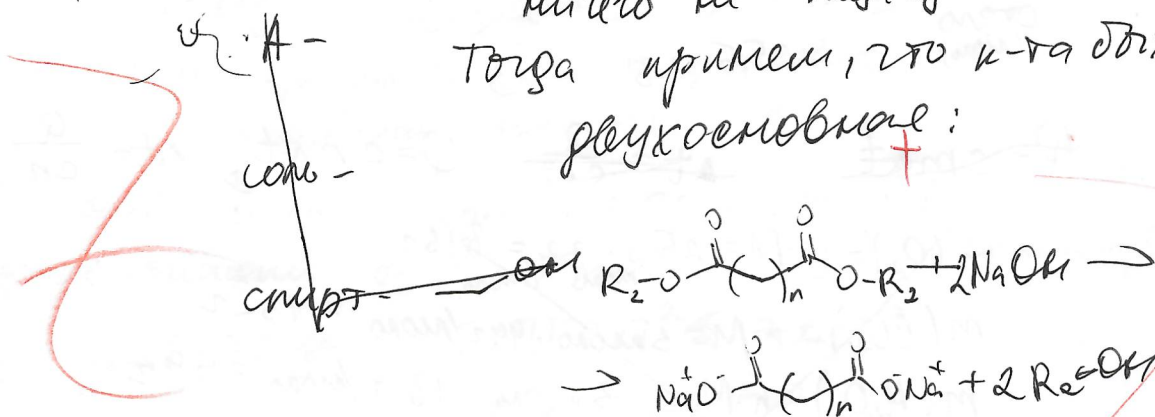 Тогда примем, что к-та бы
двухосновная:
A -
соль -
спирт - OH
R₂-O O O O-R₂ + 2NaOH →
n
→ Na⁺O⁻ O O O⁻Na⁺ + 2 R₂-OH
n